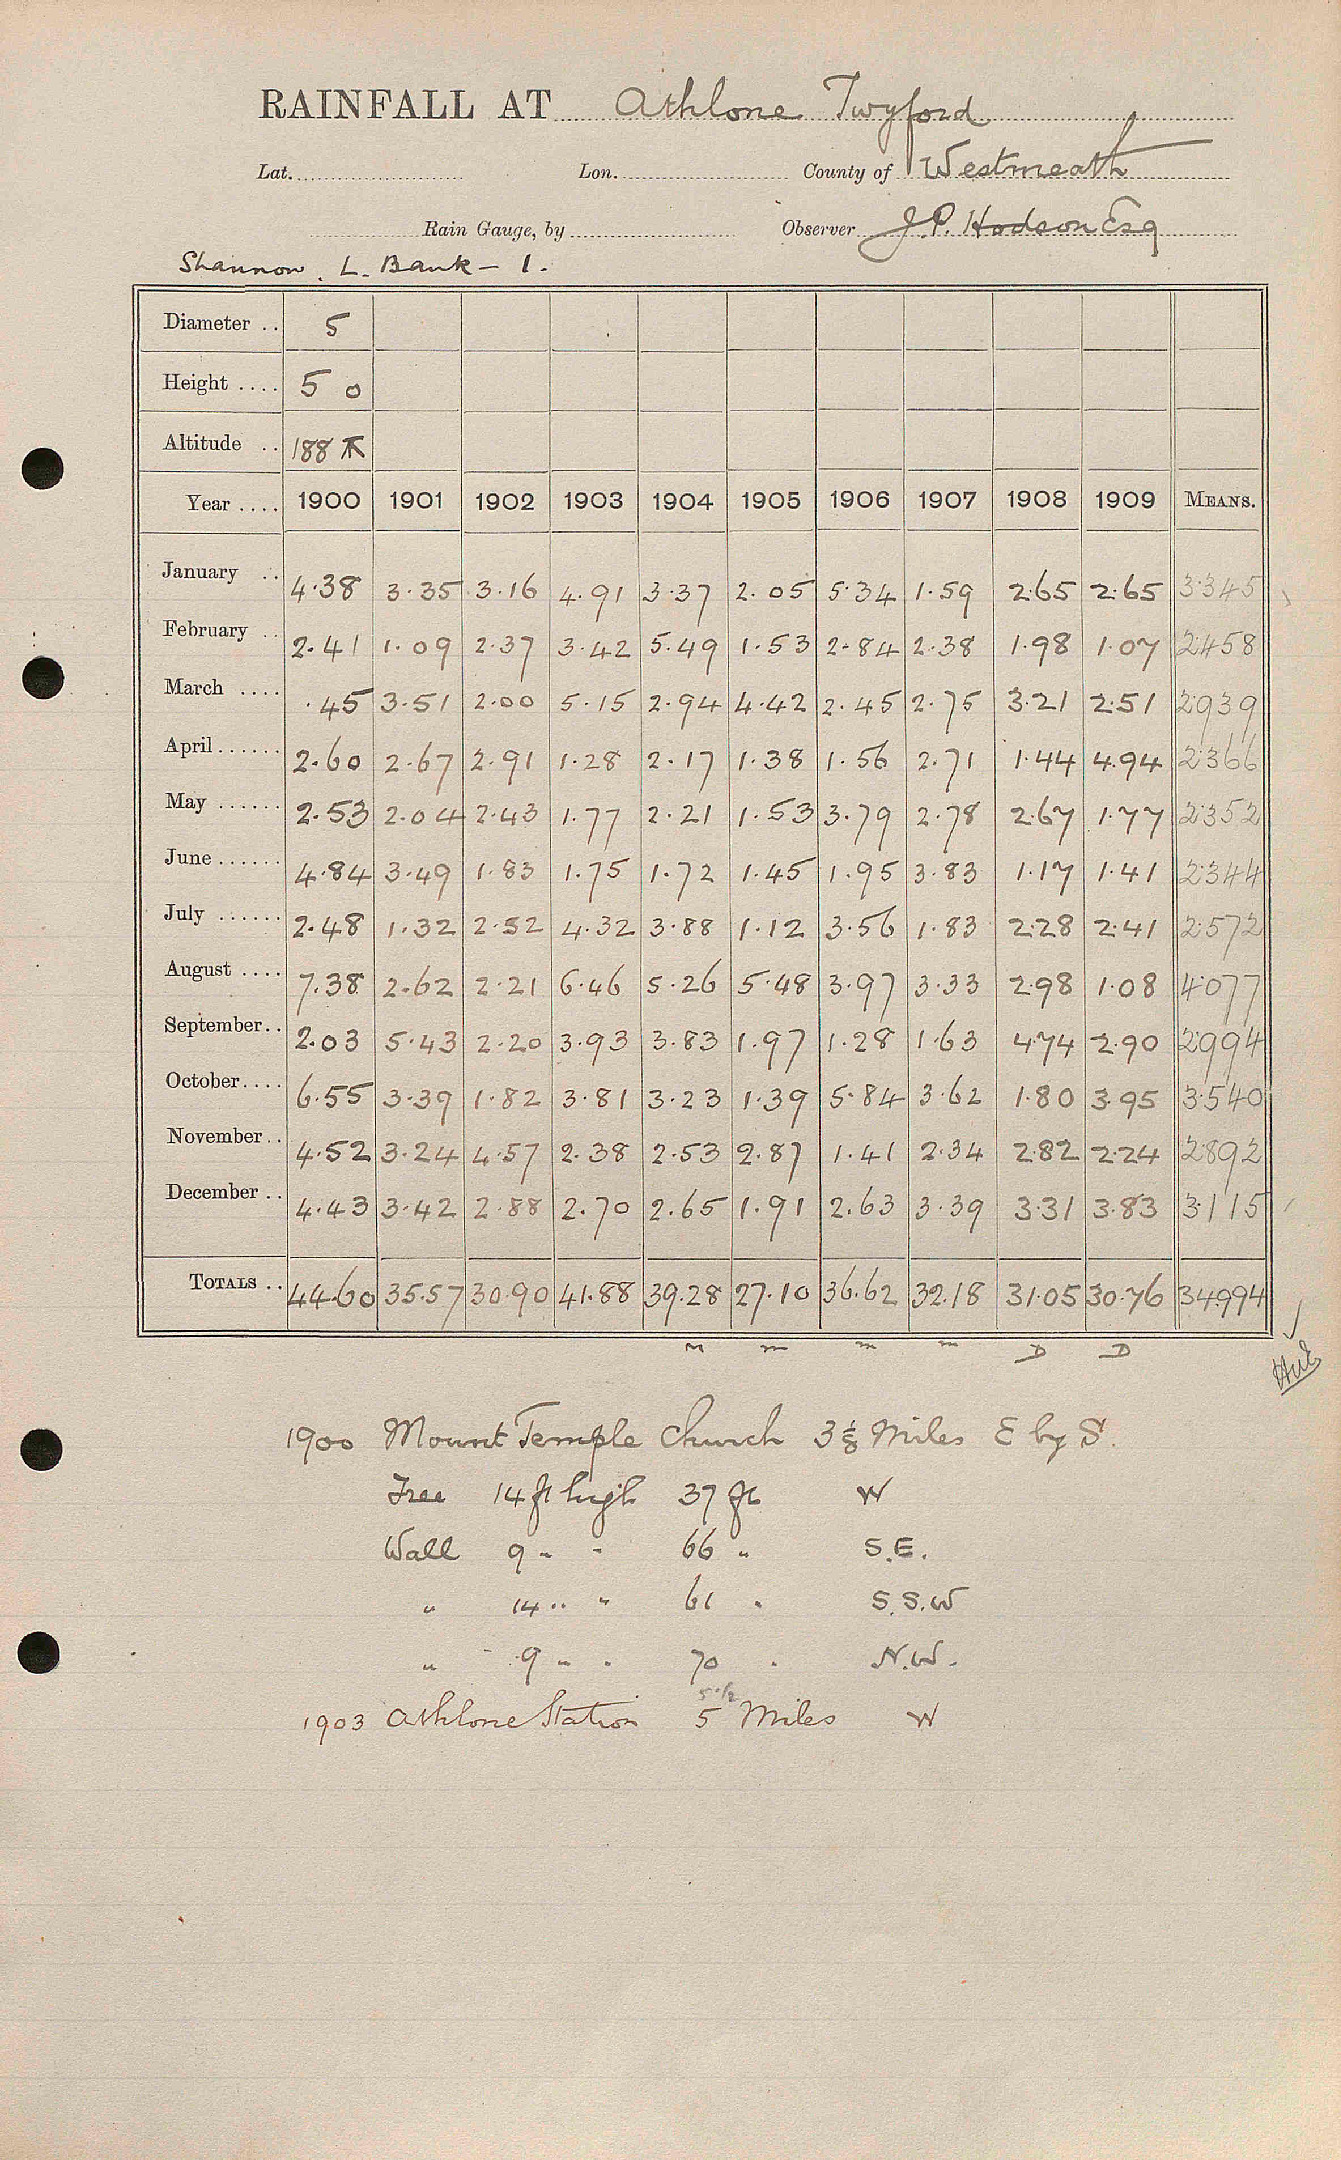 RAINFALL AT Athlone Twyford
Lat. Lon. County of Westmeath
Rain Gauge, by Observer J. P. Hodson Esq
Shannon. L. Bank - 1.
Diameter .. 5
Height .... 5 0
Altitude .. 188
Year .... 1900 1901 1902 1903 1904 1905 1906 1907 1908 1909 MEANS.
January .. 4.38 3.35 3.16 4.91 3.37 2.05 5.34 1.59 2.65 2.65 3.345
February .. 2.41 1.09 2.37 3.42 5.49 1.53 2.84 2.38 1.98 1.07 2.458
March .... .45 3.51 2.00 5.15 2.94 4.42 2.45 2.75 3.21 2.51 2.939
April ...... 2.60 2.67 2.91 1.28 2.17 1.38 1.56 2.71 1.44 4.94 2.366
May ...... 2.53 2.04 2.43 1.77 2.21 1.53 3.79 2.78 2.67 1.77 2.352
June ...... 4.84 3.49 1.83 1.75 1.72 1.45 1.95 3.83 1.17 1.41 2.344
July ...... 2.48 1.32 2.52 4.32 3.88 1.12 3.56 1.83 2.28 2.41 2.572
August .... 7.38 2.62 2.21 6.46 5.26 5.48 3.97 3.33 2.98 1.08 4.077
September .. 2.03 5.43 2.20 3.93 3.83 1.97 1.28 1.63 4.74 2.90 2.994
October .... 6.55 3.39 1.82 3.81 3.23 1.39 5.84 3.62 1.80 3.95 3.540
November .. 4.52 3.24 4.57 2.38 2.53 2.87 1.41 2.34 2.82 2.24 2.892
December .. 4.43 3.42 2.88 2.70 2.65 1.91 2.63 3.39 3.31 3.83 3.115
TOTALS .. 44.60 35.57 30.90 41.88 39.28 27.10 36.62 32.18 31.05 30.76 34.994
m m m m D D
1900 Mount Temple Church 3 1/8 Miles E by S.
Tree 14 ft high 37 ft W
Wall 9 " " 66 " S.E.
" 14 " " 61 " S.S.W
" 9 " " 70 " N.W.
5 1/2
1903 Athlone Station 5 Miles W